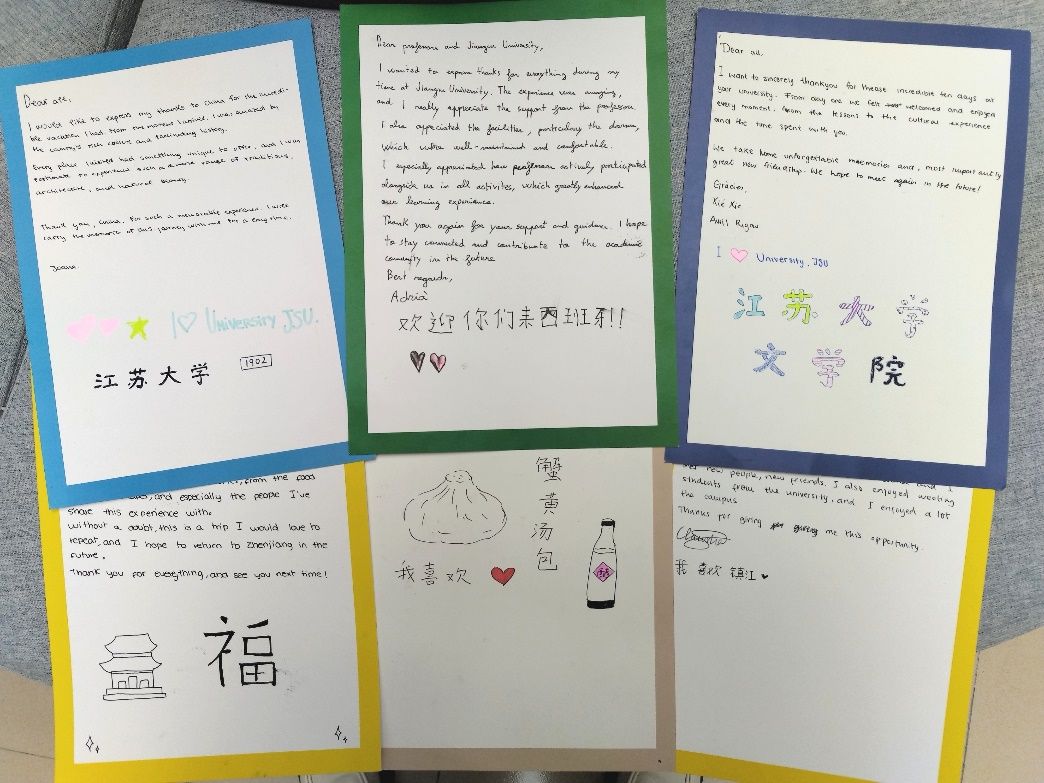 Dear all,
I would like to express my thanks to China for the incredi-
ble vacation I had from the moment I arrived. I was amazed by
the country's rich culture and fascinating history.
Every place I visited had something unique to offer, and I was
fortunate to experience such a diverse range of traditions,
architecture, and natural beauty.
Thank you, China, for such a memorable experience. I will
carry the memories of this journey with me for a long time.
Joana.
I ♡ University JSU.
江苏大学 1902
Dear professors and Jiangsu University,
I wanted to express thanks for everything during my
time at Jiangsu University. The experience were amazing,
and I really appreciate the support from the professors.
I also appreciated the facilities, particulary the dorms,
which were well-maintained and comfortable.
I especially appreciated how professors actively participated
alongside us in all activites, which greatly enhanced
our learning experience.
Thank you again for your support and guidance. I hope
to stay connected and contribute to the academic
community in the future
Best regards,
Adrià
欢迎你们来西班牙!!
Dear all,
I want to sincerely thankyou for these incredible ten days at
your university. From day one we felt welcomed and enjoyed
every moment, from the lessons to the cultural experience
and the time spent with you.
We take home unforgetable memories and, most importantly
great new friendship. We hope to meet again in the future!
Gràcies,
Xiè Xie
I ♡ University JSU
江苏大学
文学院
from the food
and especially the people I've
share this experience with.
Without a doubt, this is a trip I would love to
repeat, and I hope to return to Zhenjiang in the
future.
Thank you for everything, and see you next time!
福
蟹黄汤包
我喜欢 ♥
new people, new friends. I also enjoyed meeting
students from the university, and I enjoyed a lot
the campus
Thanks for giving me this opportunity.
我喜欢镇江 ♥